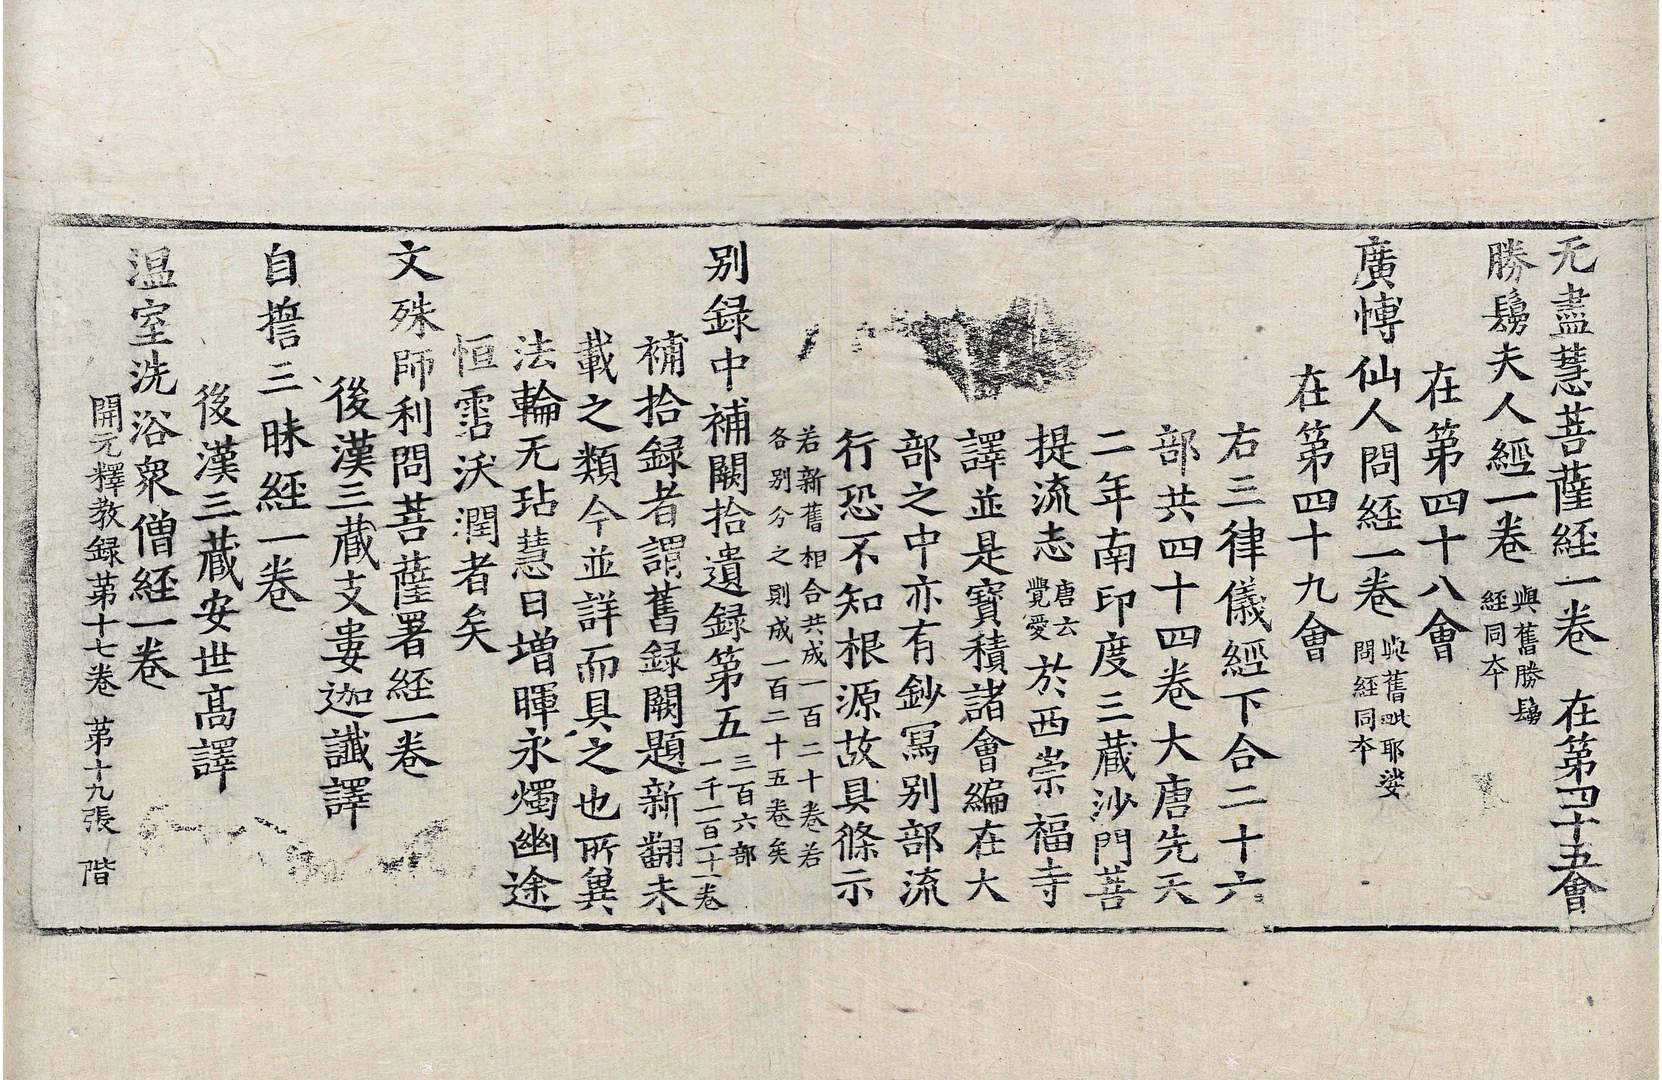 无盡慧菩薩經一卷 在第四十五會
勝鬘夫人經一卷 與舊勝鬘經同本
在第四十八會
廣愽仙人問經一卷 與舊毗耶娑問經同本
在第四十九會
右三律儀經下合二十六
部共四十四卷大唐先天
二年南印度三藏沙門菩
提流志 唐云覺愛 於西崇福寺
譯並是寶積諸會編在大
部之中亦有鈔寫別部流
行恐不知根源故具條示
若新舊相合共成一百二十卷若
各別分之則成一百二十五卷矣
別録中補闕拾遺録第五 三百六部一千一百一十一卷
補拾録者謂舊録闕題新翻未
載之類今並詳而具之也所冀
法輪无玷慧日増暉永燭幽途
恒霑沃潤者矣
文殊師利問菩薩署經一卷
後漢三藏支婁迦讖譯
自誓三昧經一卷
後漢三藏安世高譯
温室洗浴衆僧經一卷
開元釋教録第十七卷 第十九張 階